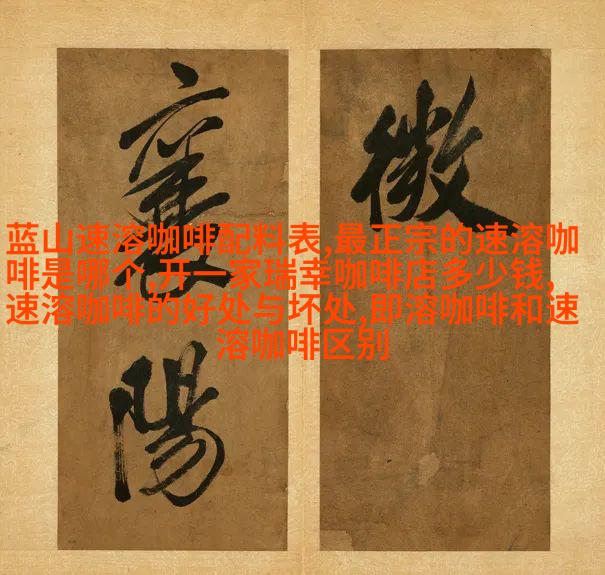 蓝山速溶咖啡配料表,最正宗的速溶咖
啡是哪个,开一家瑞幸咖啡店多少钱,
速溶咖啡的好处与坏处,即溶咖啡和速
溶咖啡区别
襄陽